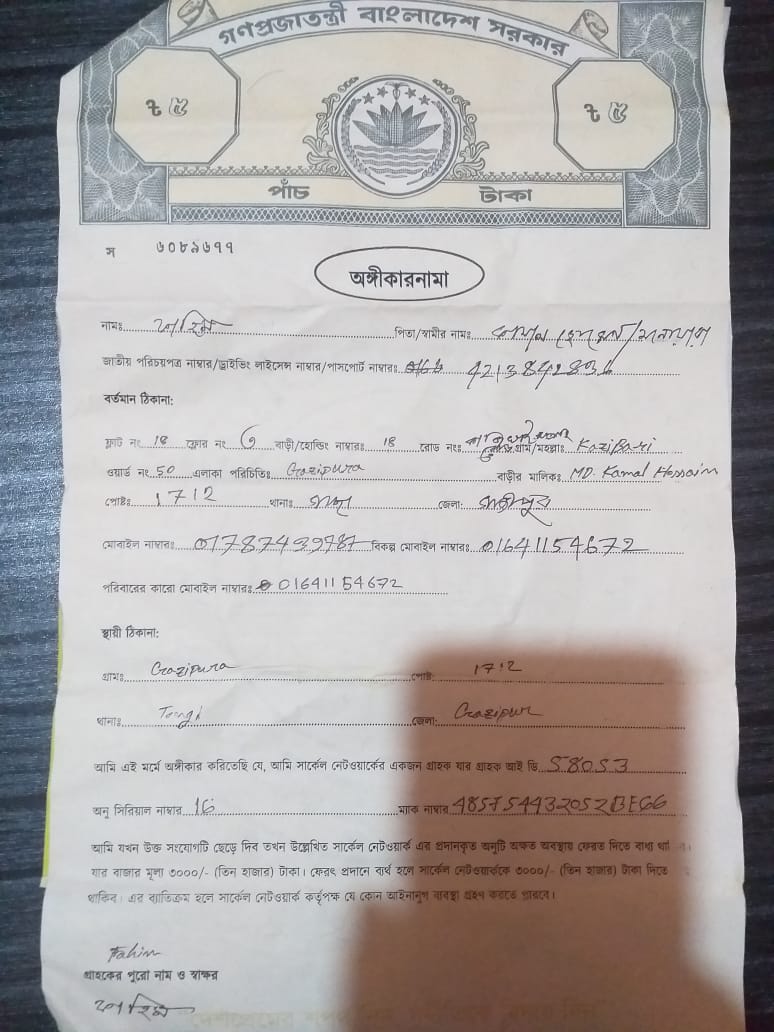 গণপ্রজাতন্ত্রী বাংলাদেশ সরকার
৳ ৫ ৳ ৫
পাঁচ টাকা
স ৬০৮৯৬৭৭
অঙ্গীকারনামা
নামঃ ফাহিম পিতা/স্বামীর নামঃ
জাতীয় পরিচয়পত্র নাম্বার/ড্রাইভিং লাইসেন্স নাম্বার/পাসপোর্ট নাম্বারঃ 4213842836
বর্তমান ঠিকানা:
ফ্লাট নং 18 ফ্লোর নং বাড়ী/হোল্ডিং নাম্বারঃ 18 রোড নংঃ গ্রাম/মহল্লাঃ KaziBari
ওয়ার্ড নং 50 এলাকা পরিচিতিঃ Gazipura বাড়ীর মালিকঃ MD. Kamal Hossain
পোষ্টঃ 1712 থানাঃ জেলাঃ গাজীপুর
মোবাইল নাম্বারঃ 01787439787 বিকল্প মোবাইল নাম্বারঃ 01641154672
পরিবারের কারো মোবাইল নাম্বারঃ 01641154672
স্থায়ী ঠিকানা:
গ্রামঃ Gazipura পোষ্ট: 1712
থানাঃ Tongi জেলা: Gazipur
আমি এই মর্মে অঙ্গীকার করিতেছি যে, আমি সার্কেল নেটওয়ার্কের একজন গ্রাহক যার গ্রাহক আই ডি 58053
অনু সিরিয়াল নাম্বার 16 ম্যাক নাম্বার 485754432052BE66
আমি যখন উক্ত সংযোগটি ছেড়ে দিব তখন উল্লেখিত সার্কেল নেটওয়ার্ক এর প্রদানকৃত অনুটি অক্ষত অবস্থায় ফেরত দিতে বাধ্য
যার বাজার মূল্য ৩০০০/- (তিন হাজার) টাকা। ফেরৎ প্রদানে ব্যর্থ হলে সার্কেল নেটওয়ার্ককে ৩০০০/- (তিন হাজার) টাকা দিতে
থাকিব। এর ব্যতিক্রম হলে সার্কেল নেটওয়ার্ক কর্তৃপক্ষ যে কোন আইনানুগ ব্যবস্থা গ্রহণ করতে পারবে।
Fahim
গ্রাহকের পুরো নাম ও স্বাক্ষর
ফাহিম